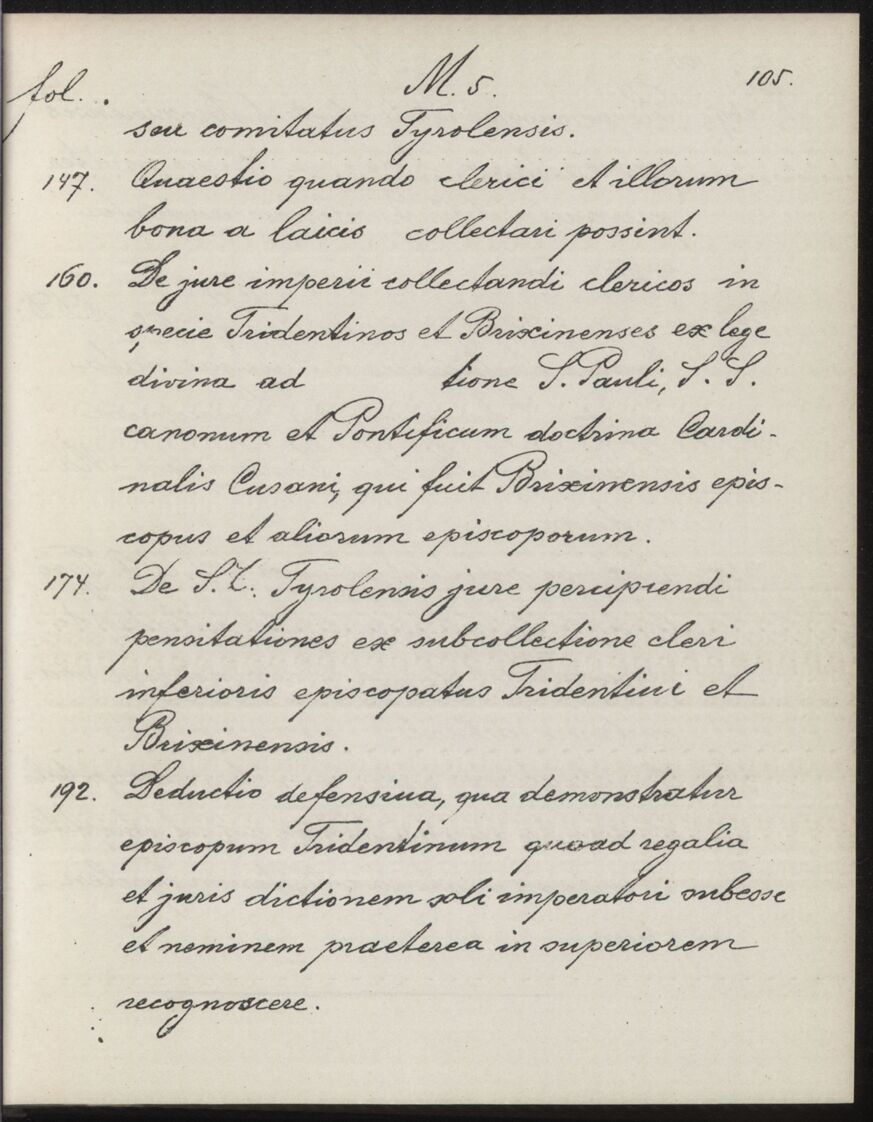 fol. M. 5. 105.
seu comitatus Tyrolensis.
147. Quaestio quando clerici et illorum
bona a laicis collectari possint.
160. De jure imperii collectandi clericos in
specie Tridentinos et Brixinenses ex lege
divina ad tione S. Pauli, S. S.
canonum et Pontificum doctrina Cardi-
nalis Cusani, qui fuit Brixinensis epis-
copus et aliorum episcoporum.
174. De S. Tyrolensis jure percipiendi
pensitationes ex subcollectione cleri
inferioris episcopatus Tridentini et
Brixinensis.
192. Deductio defensiva, qua demonstratur
episcopum Tridentinum quoad regalia
et juris dictionem soli imperatori subesse
et neminem praeterea in superiorem
recognoscere.